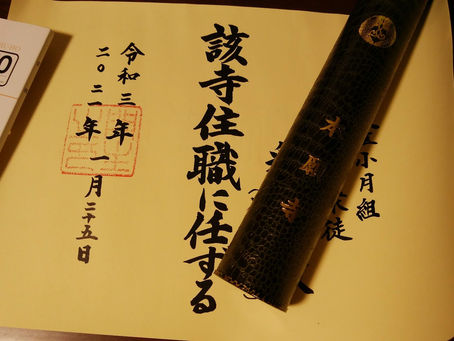 小月組
徒
本願寺
該寺住職に任ずる
令和三年
二〇二一年一月二十五日